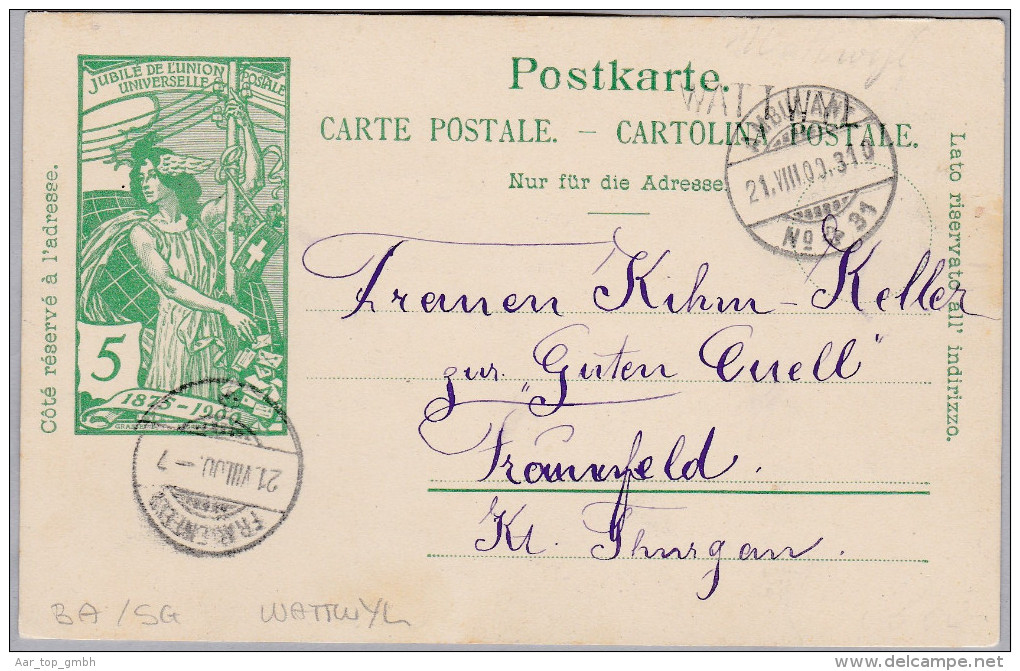 JUBILÉ DE L'UNION
POSTALE
UNIVERSELLE
5
1875-1900
Postkarte.
WATTWYL
CARTE POSTALE. — CARTOLINA POSTALE.
Nur für die Adresse.
AMBULANT
21.VIII.00.310
No 31
Côté réservé à l'adresse.
Lato riservato all' indirizzo.
Frauen Kihm-Keller
zur "Guten Quell"
Frauenfeld.
Kt. Thurgau.
21.VIII.00.-7
FRAUENFELD
BA/SG WATTWYL
Aar_top_gmbh
delcampe.net